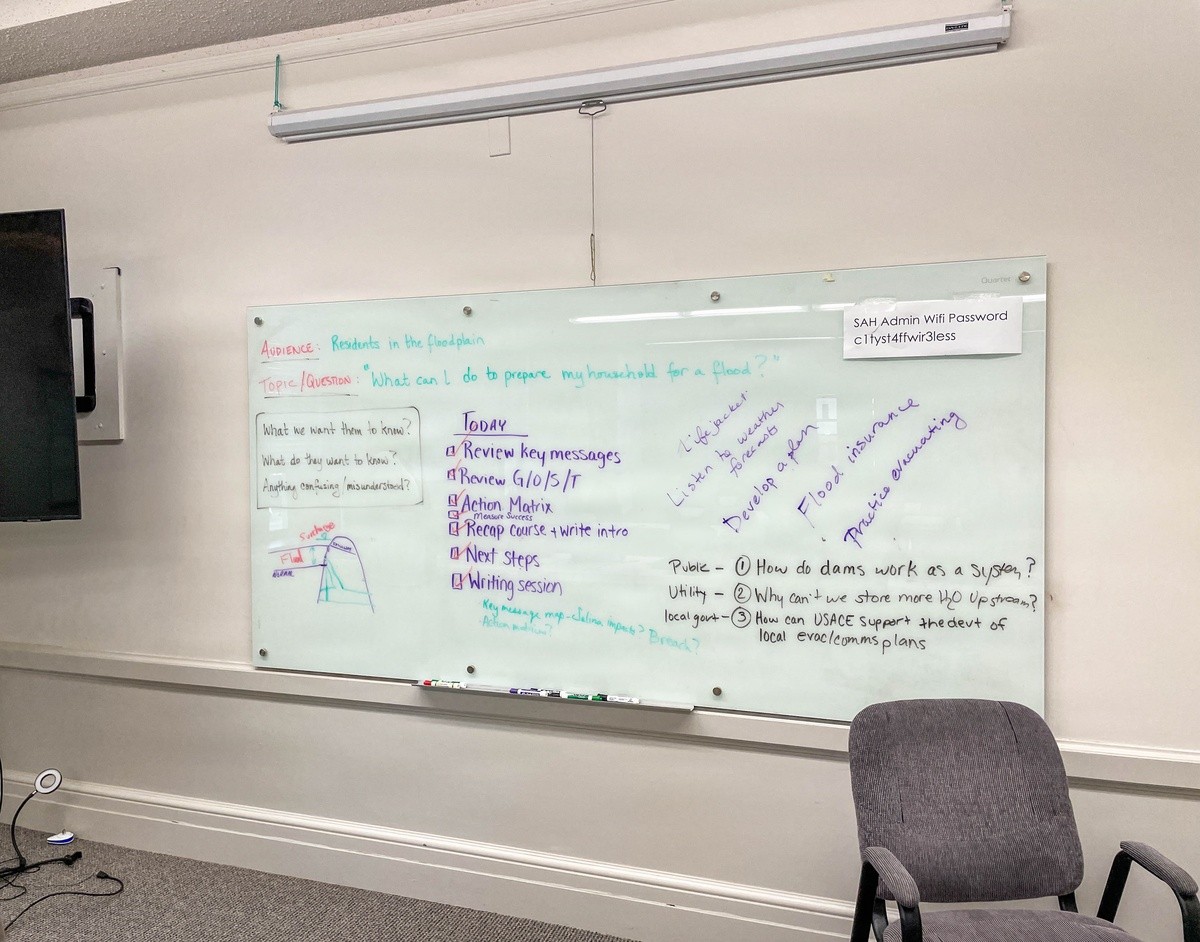 Quartet
SAH Admin Wifi Password
c1tyst4ffwir3less
AUDIENCE: Residents in the floodplain
TOPIC/QUESTION: "What can I do to prepare my household for a flood?"
What we want them to know?
What do they want to know?
Anything confusing/misunderstood?
Surcharge
Flood
TODAY
Review key messages
Review G/O/S/T
Action Matrix
Measure Success
Recap course + write intro
Next steps
Writing session
Key message map - Salina impacts?
Action matrix?
Breach?
Lifejacket
Listen to weather
forecasts
Develop a plan
Flood insurance
Practice evacuating
Public - ① How do dams work as a system?
Utility - ② Why can't we store more H2O upstream?
local govt - ③ How can USACE support the devt of
local evac/comms plans